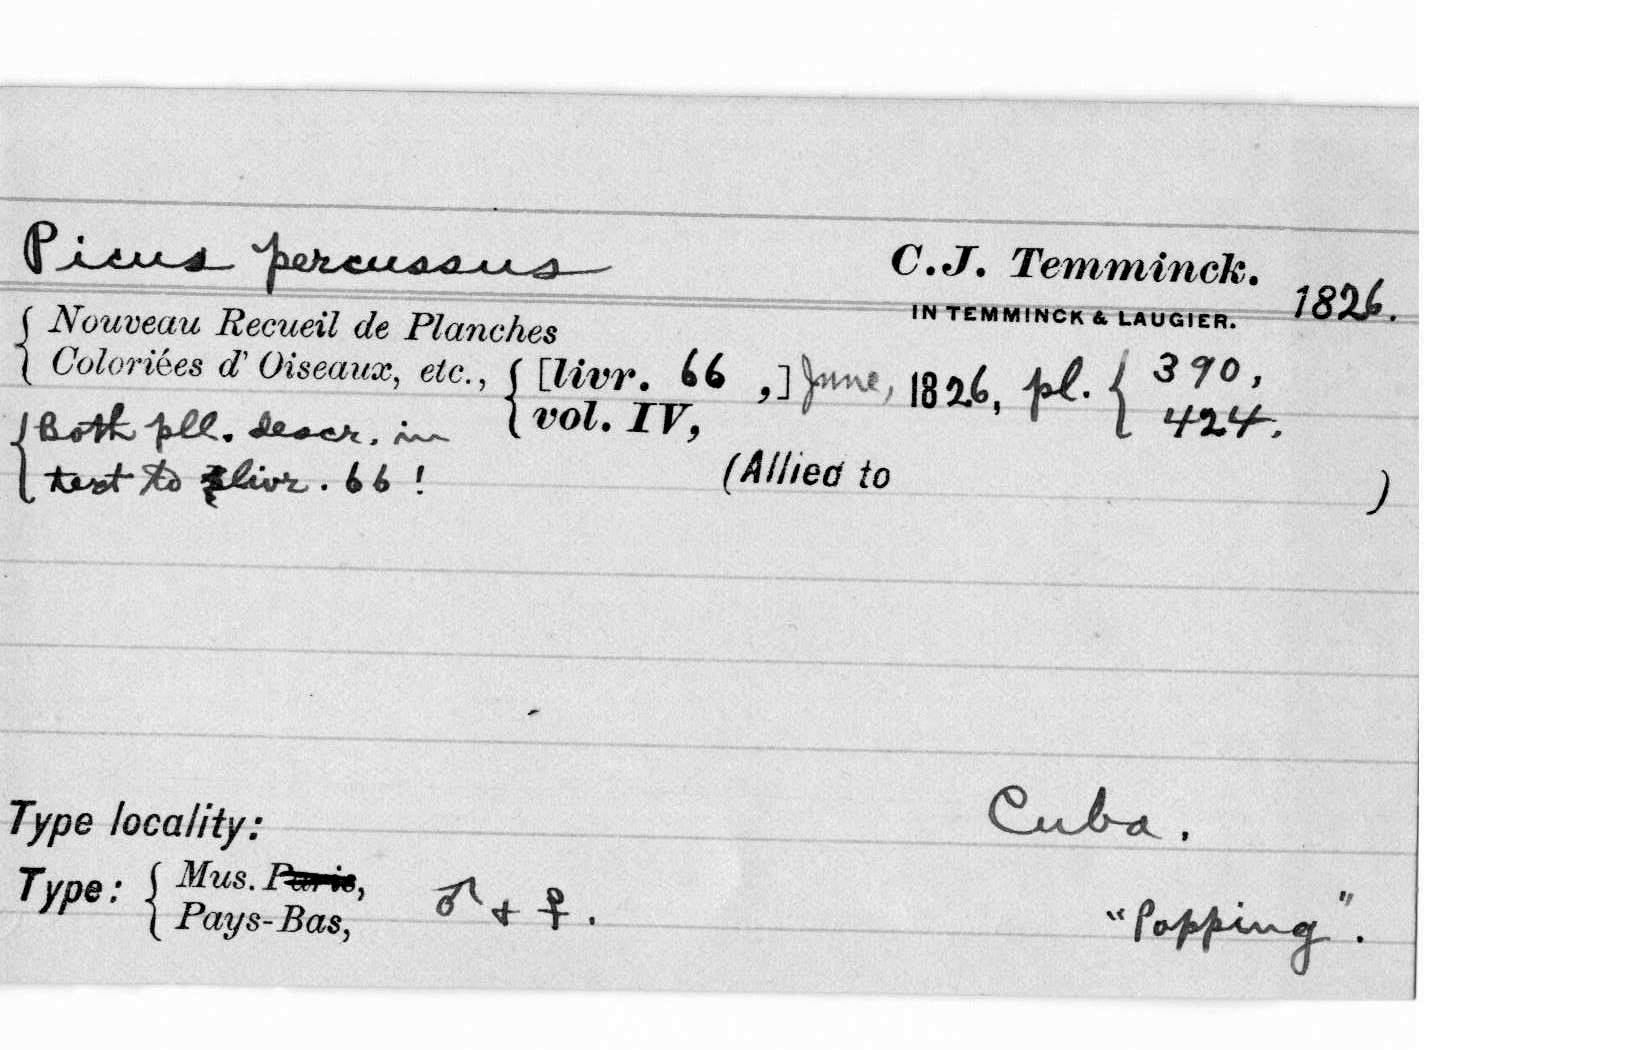 Picus percussus C.J. Temminck.
IN TEMMINCK & LAUGIER. 1826.
{ Nouveau Recueil de Planches
Coloriées d' Oiseaux, etc., { [livr. 66 ,] June, 1826, pl. { 390,
vol. IV, 424.
{ Both pll. descr. in
text to livr. 66 !
(Allied to )
Type locality: Cuba.
Type: { Mus. Paris,
Pays-Bas, ♂ + ♀. "Popping".